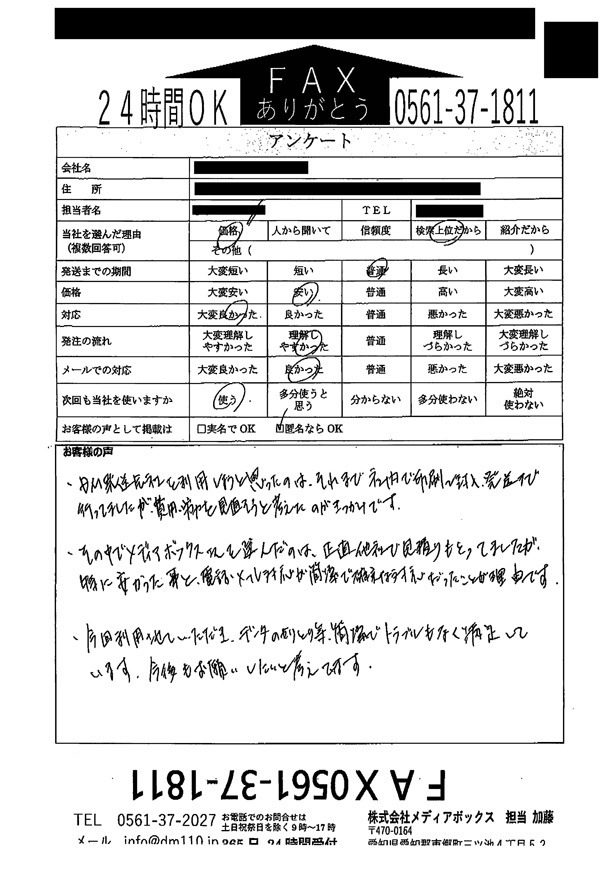 24時間OK
FAX
ありがとう
0561-37-1811
アンケート
会社名
住 所
担当者名 TEL
当社を選んだ理由 (複数回答可) 価格 人から聞いて 信頼度 検索上位だから 紹介だから
その他 ( )
発送までの期間 大変短い 短い 普通 長い 大変長い
価格 大変安い 安い 普通 高い 大変高い
対応 大変良かった 良かった 普通 悪かった 大変悪かった
発注の流れ 大変理解しやすかった 理解しやすかった 普通 理解しづらかった 大変理解しづらかった
メールでの対応 大変良かった 良かった 普通 悪かった 大変悪かった
次回も当社を使いますか 使う 多分使うと思う 分からない 多分使わない 絶対使わない
お客様の声として掲載は □実名でOK ☑匿名ならOK
お客様の声
・DM発送代行を利用しようと思ったのは、それまで社内で印刷、封入、発送まで
行ってましたが、費用、労力を見直そうと考えたのがきっかけです。
・その中でメディアボックスさんを選んだのは、正直他社でも見積りもとってましたが、
特に安かった事と、電話・メール対応が簡潔で な対応だったことが理由です。
・今回利用させていただき、データのやりとり等、簡潔でトラブルもなく満足して
います。今後もお願いしたいと考えてます。
FAX0561-37-1811
TEL 0561-37-2027 お電話でのお問合せは 土日祝祭日を除く9時～17時
株式会社メディアボックス 担当 加藤
〒470-0164
メール info@dm110.jp 365日 24時間受付
愛知県愛知郡東郷町三ツ池4丁目5 2